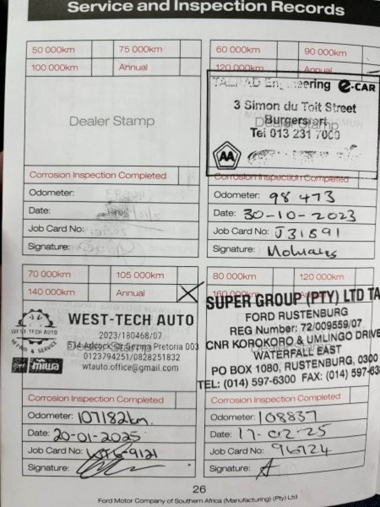 Service and Inspection Records
50 000km 75 000km
100 000km Annual
Dealer Stamp
Corrosion Inspection Completed
Odometer:
Date:
Job Card No:
Signature:
60 000km 90 000km
120 000km Annual
3 Simon du Toit Street
Burgersfort
Tel 013 231
AA
e-CAR
Corrosion Inspection Completed
Odometer: 98 473
Date: 30-10-2023
Job Card No: J31891
Signature:
70 000km 105 000km
140 000km Annual X
WEST-TECH AUTO
2023/180468/07
Pretoria 003
0123794251/0828251832
wtauto.office@gmail.com
Corrosion Inspection Completed
Odometer: 107182km
Date: 20-01-2025
Job Card No: 9121
Signature:
80 000km 120 000km
SUPER GROUP (PTY) LTD TA
FORD RUSTENBURG
REG Number: 72/009559/07
CNR KOROKORO & UMLINGO DRIVE
WATERFALL EAST
PO BOX 1080, RUSTENBURG, 0300
TEL: (014) 597-6300 FAX: (014) 597-63
Corrosion Inspection Completed
Odometer: 108837
Date: 17-02-25
Job Card No: 96724
Signature:
26
Ford Motor Company of Southern Africa (Manufacturing) (Pty) Ltd